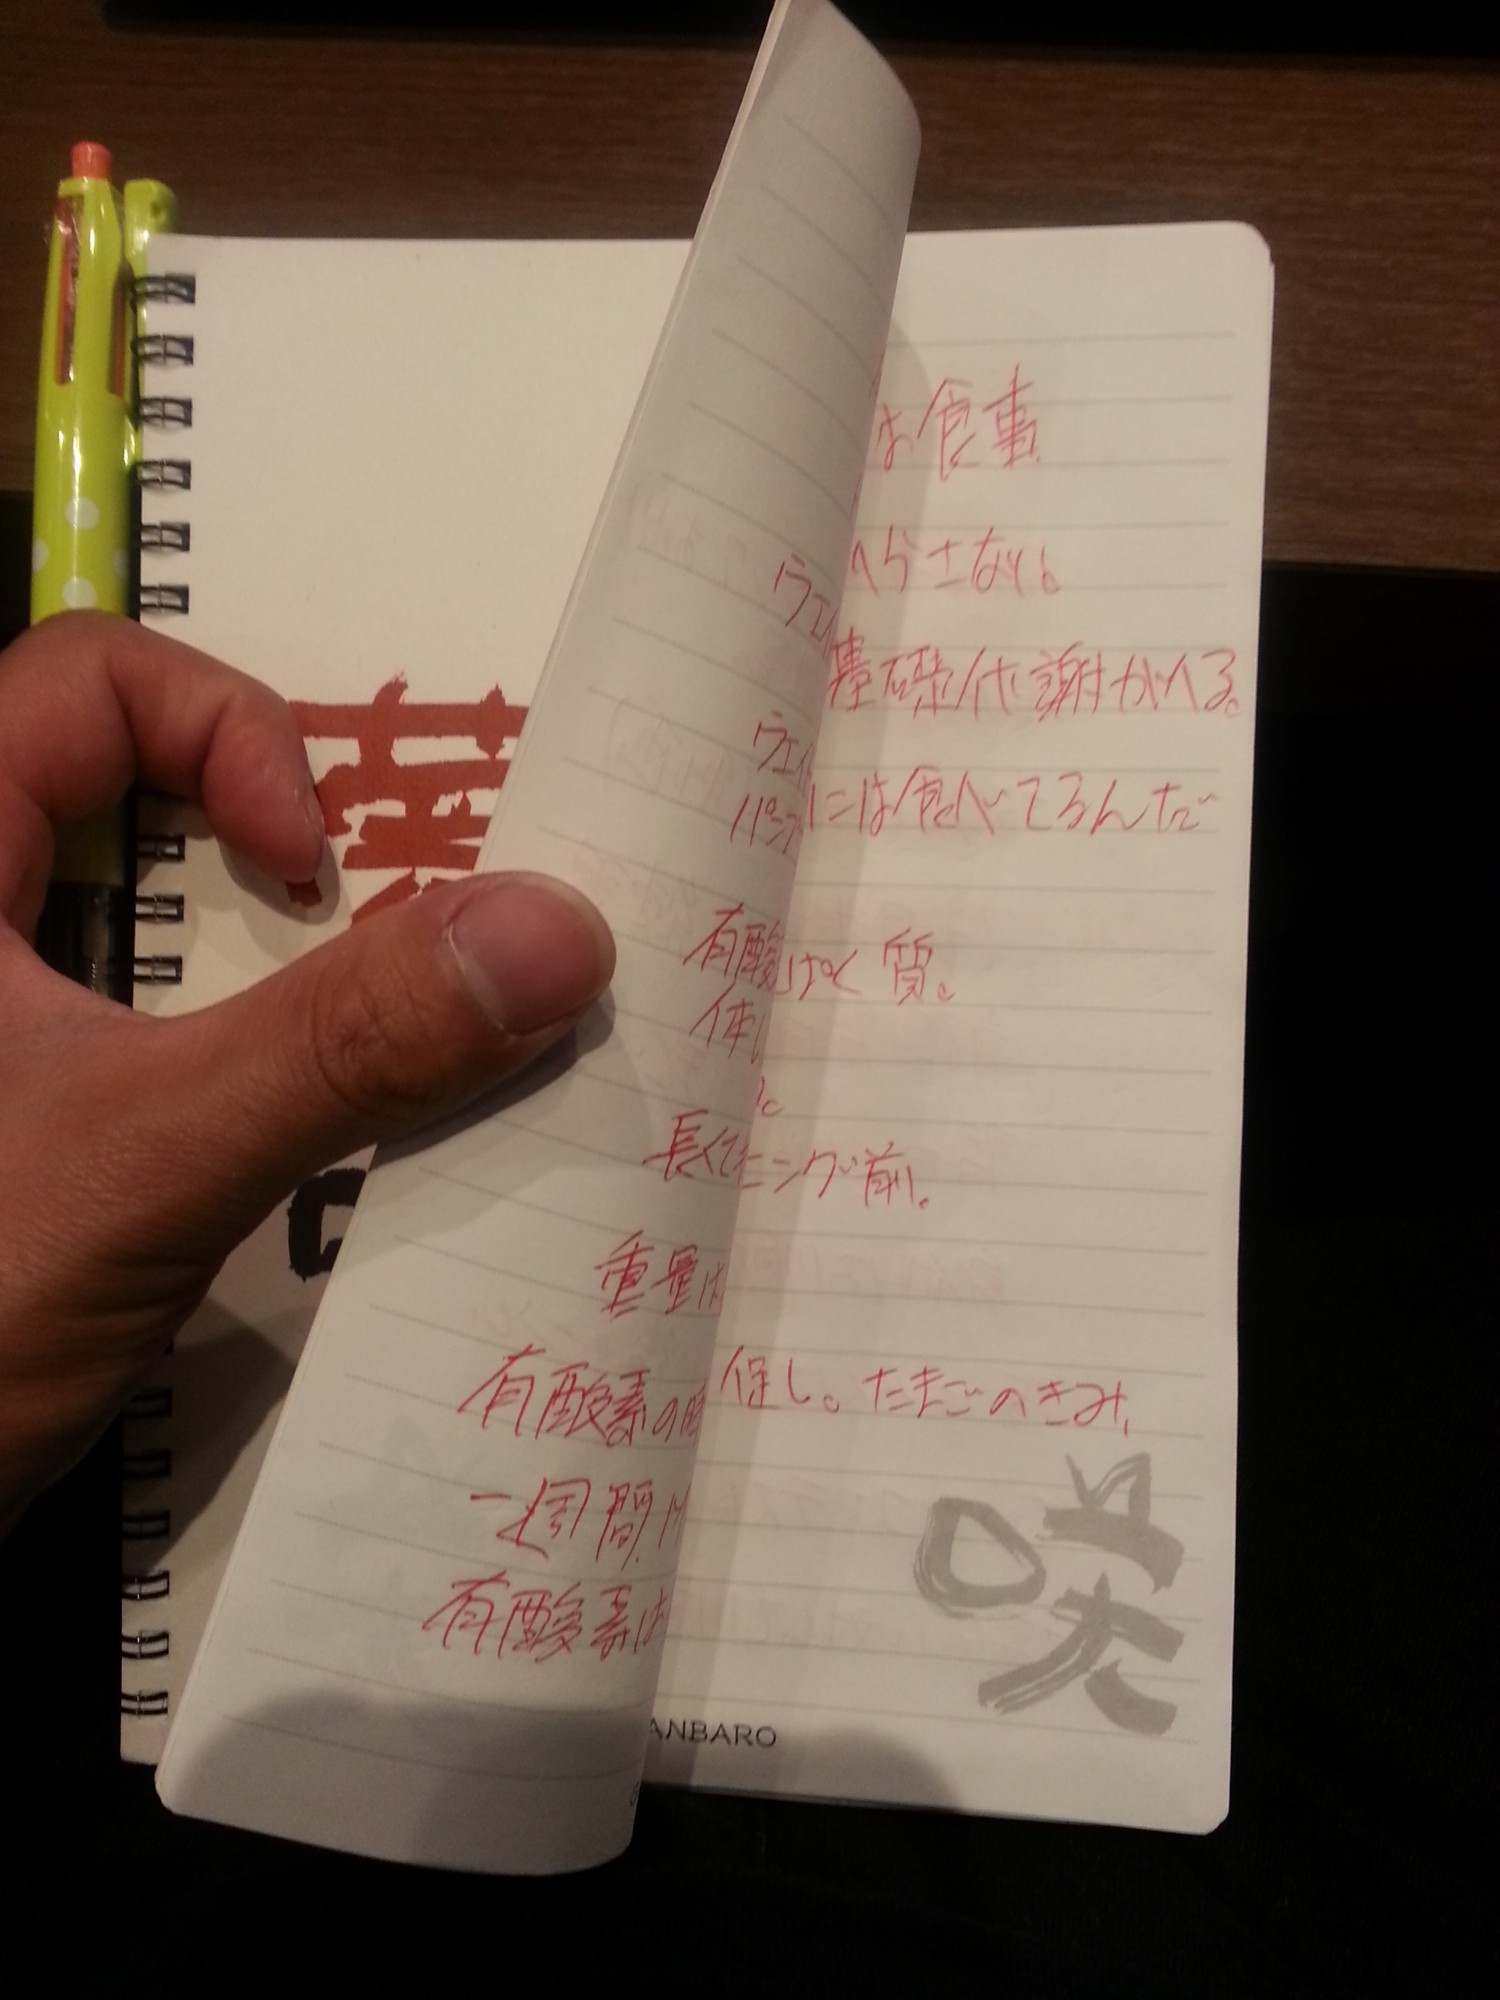 は食事
へらさない。
基礎代謝がへる。
には食べてるんだ
ぱく質。
ニング前。
保し。たまごのきみ、
咲
ANBARO
ウエ
ウエイ
有酸
体
長くて
重量は
有酸素の
一週間
有酸素は